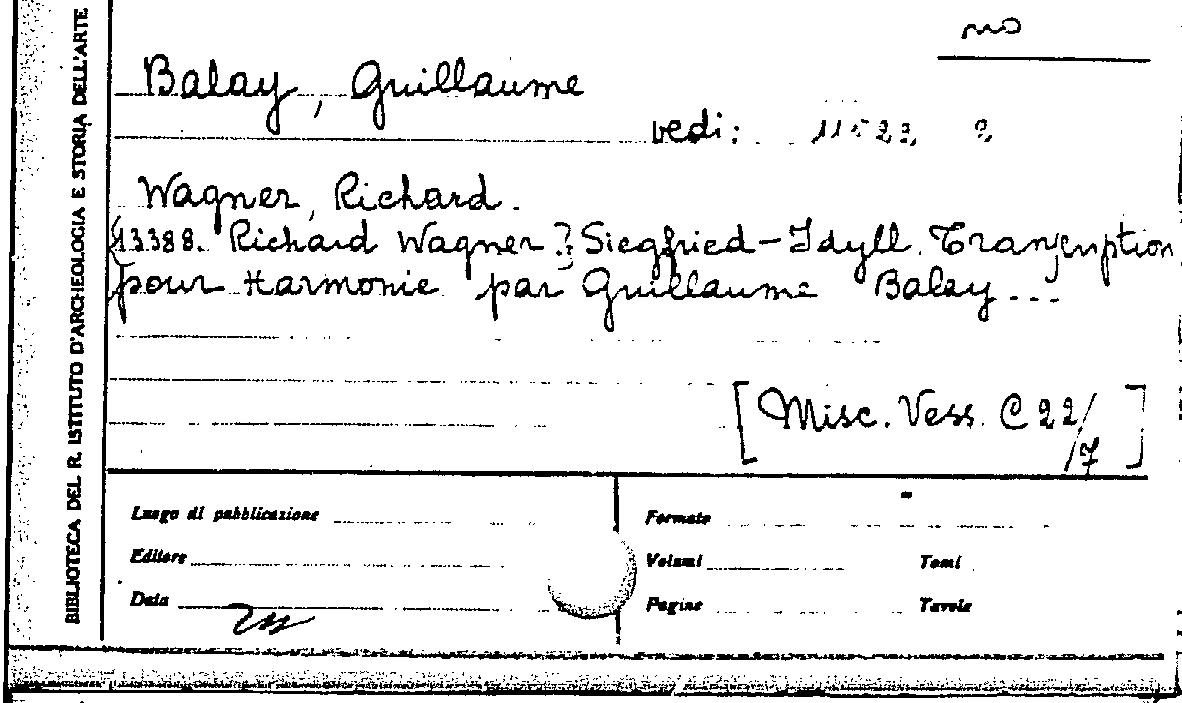 no
Balay, Guillaume
vedi:
Wagner, Richard.
13388. Richard Wagner. Siegfried-Idyll. Transcription
pour Harmonie par Guillaume Balay...
[Misc. Vess. C 22/7]
BIBLIOTECA DEL R. ISTITUTO D'ARCHEOLOGIA E STORIA DELL'ARTE
Luogo di pubblicazione
Formato
Editore
Volumi
Tomi
Data
Pagine
Tavole